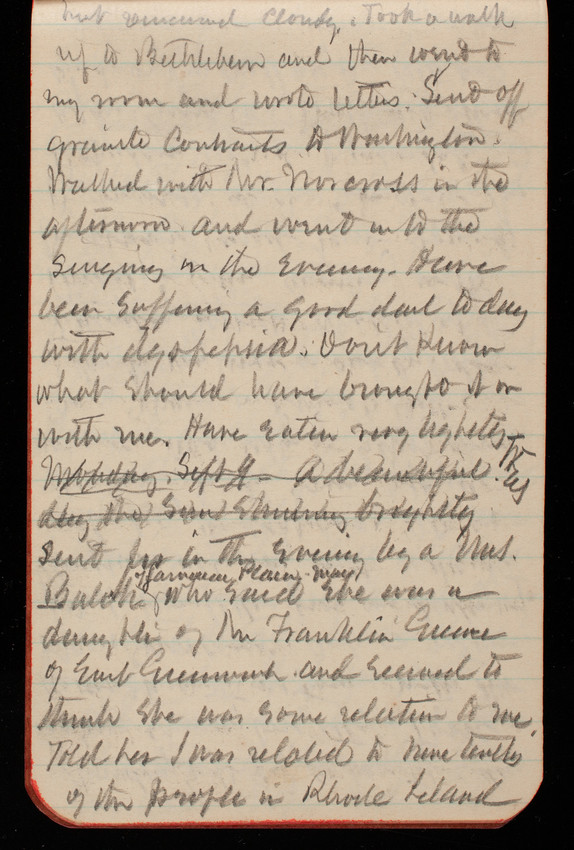 but remained cloudy. Took a walk
up to Bethlehem and then went to
my room and wrote letters. Sent off
granite Contracts to Washington.
Walked with Mr. Norcross in the
afternoon and went in to the
singing in the Evening. Have
been suffering a good deal to day
with dyspepsia. Don't Know
what should have brought it on
with me. Have Eaten very lightly
Monday. Sept 9 - A beautiful
day the Sun Shining brightly
Sent for in the Evening by a Mrs.
of Jamaica Plain - Mass
Balch, who said she was a
daughter of Mr Franklin Greene
of East Greenwich and seemed to
think she was some relation to me.
Told her I was related to nine tenths
of the people in Rhode Island